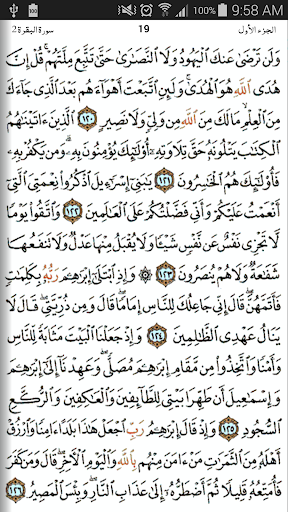 9:58 AM
الجزء الأول 19 سورة البقرة 2
وَلَن تَرْضَىٰ عَنكَ ٱلْيَهُودُ وَلَا ٱلنَّصَٰرَىٰ حَتَّىٰ تَتَّبِعَ مِلَّتَهُمْ ۗ قُلْ إِنَّ
هُدَى ٱللَّهِ هُوَ ٱلْهُدَىٰ ۗ وَلَئِنِ ٱتَّبَعْتَ أَهْوَآءَهُم بَعْدَ ٱلَّذِى جَآءَكَ
مِنَ ٱلْعِلْمِ ۙ مَا لَكَ مِنَ ٱللَّهِ مِن وَلِىٍّ وَلَا نَصِيرٍ ١٢٠ ٱلَّذِينَ ءَاتَيْنَٰهُمُ
ٱلْكِتَٰبَ يَتْلُونَهُۥ حَقَّ تِلَاوَتِهِۦٓ أُو۟لَٰٓئِكَ يُؤْمِنُونَ بِهِۦ ۗ وَمَن يَكْفُرْ بِهِۦ
فَأُو۟لَٰٓئِكَ هُمُ ٱلْخَٰسِرُونَ ١٢١ يَٰبَنِىٓ إِسْرَٰٓءِيلَ ٱذْكُرُوا۟ نِعْمَتِىَ ٱلَّتِىٓ
أَنْعَمْتُ عَلَيْكُمْ وَأَنِّى فَضَّلْتُكُمْ عَلَى ٱلْعَٰلَمِينَ ١٢٢ وَٱتَّقُوا۟ يَوْمًا
لَّا تَجْزِى نَفْسٌ عَن نَّفْسٍ شَيْـًٔا وَلَا يُقْبَلُ مِنْهَا عَدْلٌ وَلَا تَنفَعُهَا
شَفَٰعَةٌ وَلَا هُمْ يُنصَرُونَ ١٢٣ ۞ وَإِذِ ٱبْتَلَىٰٓ إِبْرَٰهِـۧمَ رَبُّهُۥ بِكَلِمَٰتٍ
فَأَتَمَّهُنَّ ۖ قَالَ إِنِّى جَاعِلُكَ لِلنَّاسِ إِمَامًا ۖ قَالَ وَمِن ذُرِّيَّتِى ۖ قَالَ لَا
يَنَالُ عَهْدِى ٱلظَّٰلِمِينَ ١٢٤ وَإِذْ جَعَلْنَا ٱلْبَيْتَ مَثَابَةً لِّلنَّاسِ
وَأَمْنًا وَٱتَّخِذُوا۟ مِن مَّقَامِ إِبْرَٰهِـۧمَ مُصَلًّى ۖ وَعَهِدْنَآ إِلَىٰٓ إِبْرَٰهِـۧمَ
وَإِسْمَٰعِيلَ أَن طَهِّرَا بَيْتِىَ لِلطَّآئِفِينَ وَٱلْعَٰكِفِينَ وَٱلرُّكَّعِ
ٱلسُّجُودِ ١٢٥ وَإِذْ قَالَ إِبْرَٰهِـۧمُ رَبِّ ٱجْعَلْ هَٰذَا بَلَدًا ءَامِنًا وَٱرْزُقْ
أَهْلَهُۥ مِنَ ٱلثَّمَرَٰتِ مَنْ ءَامَنَ مِنْهُم بِٱللَّهِ وَٱلْيَوْمِ ٱلْـَٔاخِرِ ۖ قَالَ وَمَن كَفَرَ
فَأُمَتِّعُهُۥ قَلِيلًا ثُمَّ أَضْطَرُّهُۥٓ إِلَىٰ عَذَابِ ٱلنَّارِ ۖ وَبِئْسَ ٱلْمَصِيرُ ١٢٦